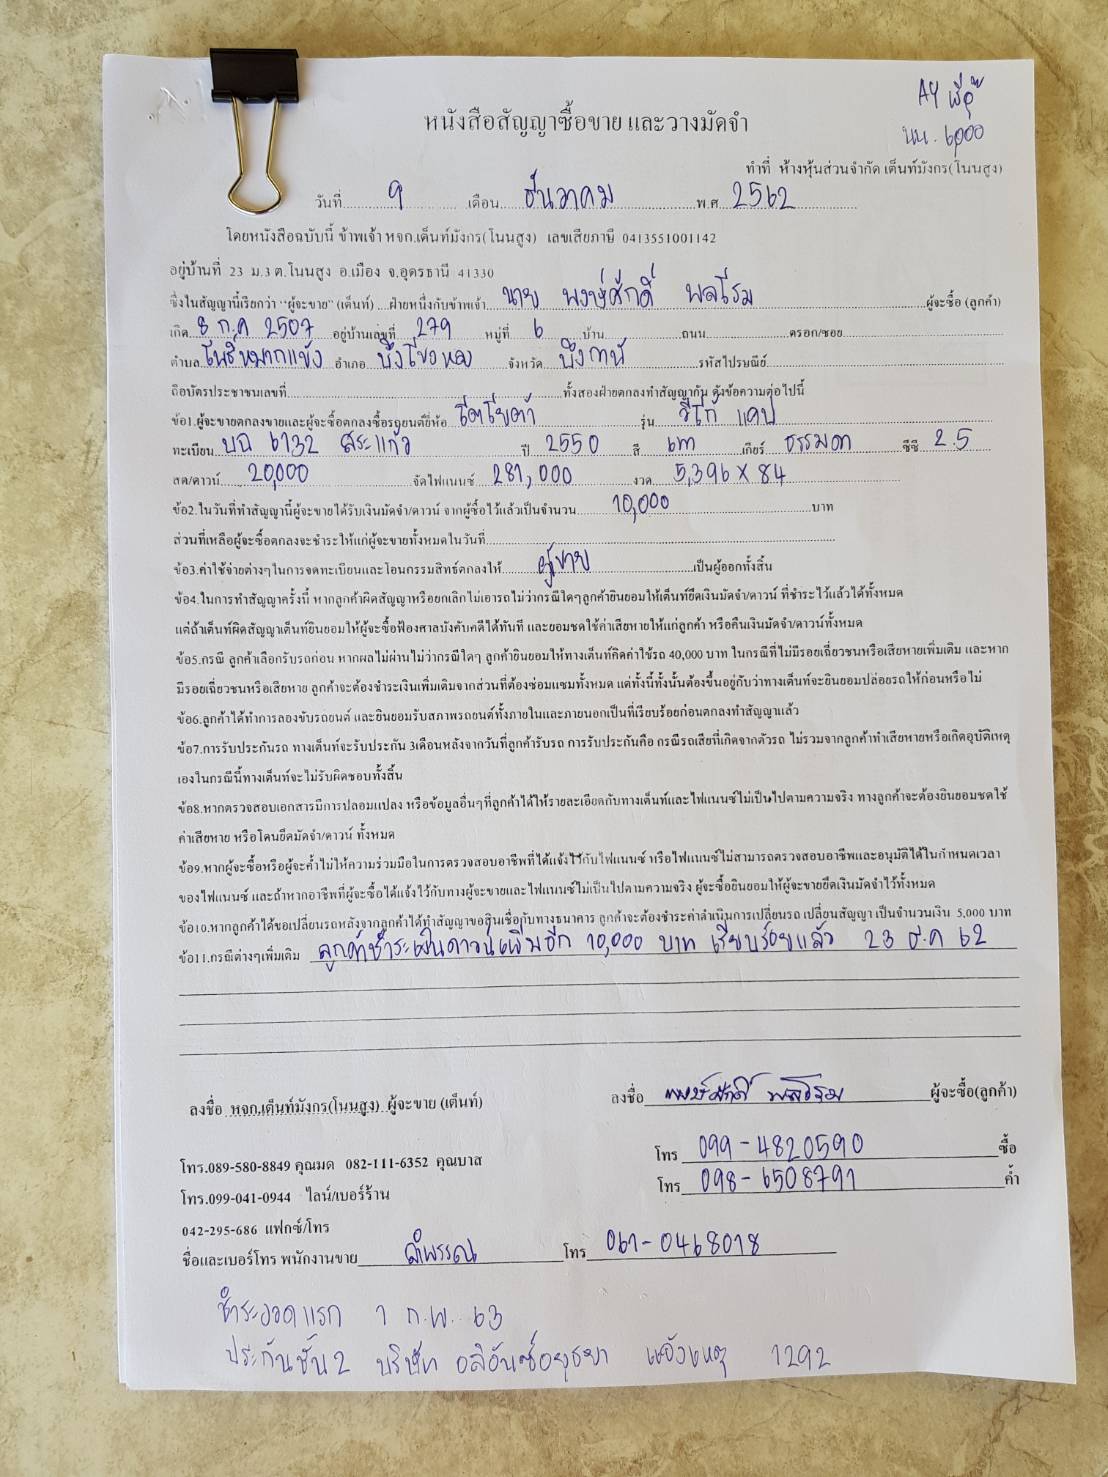 AY
นน. 6,000
หนังสือสัญญาซื้อขาย และวางมัดจำ
ทำที่ ห้างหุ้นส่วนจำกัด เต็นท์มังกร(โนนสูง)
วันที่ 9 เดือน ธันวาคม พ.ศ. 2562
โดยหนังสือฉบับนี้ ข้าพเจ้า หจก.เต็นท์มังกร(โนนสูง) เลขเสียภาษี 0413551001142
อยู่บ้านที่ 23 ม.3 ต.โนนสูง อ.เมือง จ.อุดรธานี 41330
ซึ่งในสัญญานี้เรียกว่า "ผู้จะขาย" (เต็นท์) ...ฝ่ายหนึ่งกับข้าพเจ้า นาย พงษ์ศักดิ์ พลโรม ผู้จะซื้อ (ลูกค้า)
เกิด 8 ก.ค 2507 อยู่บ้านเลขที่ 279 หมู่ที่ 6 บ้าน ถนน ตรอก/ซอย
ตำบล โพธิ์หมากแข้ง อำเภอ บึงโขงหลง จังหวัด บึงกาฬ รหัสไปรษณีย์
ถือบัตรประชาชนเลขที่ ทั้งสองฝ่ายตกลงทำสัญญากัน ดังข้อความต่อไปนี้
ข้อ1.ผู้จะขายตกลงขายและผู้จะซื้อตกลงซื้อรถยนต์ยี่ห้อ โตโยต้า รุ่น วีโก้ แคป
ทะเบียน บฉ 6132 สระแก้ว ปี 2550 สี เทา เกียร์ ธรรมดา ซีซี 2.5
สด/ดาวน์ 20,000 จัดไฟแนนซ์ 281,000 งวด 5,396 x 84
ข้อ2.ในวันที่ทำสัญญานี้ผู้จะขายได้รับเงินมัดจำ/ดาวน์ จากผู้ซื้อไว้แล้วเป็นจำนวน 10,000 บาท
ส่วนที่เหลือผู้จะซื้อตกลงจะชำระให้แก่ผู้จะขายทั้งหมดในวันที่
ข้อ3.ค่าใช้จ่ายต่างๆในการจดทะเบียนและโอนกรรมสิทธ์ตกลงให้ ผู้ขาย เป็นผู้ออกทั้งสิ้น
ข้อ4.ในการทำสัญญาครั้งนี้ หากลูกค้าผิดสัญญาหรือยกเลิกไม่เอารถไม่ว่ากรณีใดๆลูกค้ายินยอมให้เต็นท์ยึดเงินมัดจำ/ดาวน์ ที่ชำระไว้แล้วได้ทั้งหมด
แต่ถ้าเต็นท์ผิดสัญญาเต็นท์ยินยอมให้ผู้จะซื้อฟ้องศาลบังคับคดีได้ทันที และยอมชดใช้ค่าเสียหายให้แก่ลูกค้า หรือคืนเงินมัดจำ/ดาวน์ทั้งหมด
ข้อ5.กรณี ลูกค้าเลือกรับรถก่อน หากผลไม่ผ่านไม่ว่ากรณีใดๆ ลูกค้ายินยอมให้ทางเต็นท์คิดค่าใช้รถ 40,000 บาท ในกรณีที่ไม่มีรอยเฉี่ยวชนหรือเสียหายเพิ่มเติม และหาก
มีรอยเฉี่ยวชนหรือเสียหาย ลูกค้าจะต้องชำระเงินเพิ่มเติมจากส่วนที่ต้องซ่อมแซมทั้งหมด แต่ทั้งนี้ทั้งนั้นต้องขึ้นอยู่กับว่าทางเต็นท์จะยินยอมปล่อยรถให้ก่อนหรือไม่
ข้อ6.ลูกค้าได้ทำการลองขับรถยนต์ และยินยอมรับสภาพรถยนต์ทั้งภายในและภายนอกเป็นที่เรียบร้อยก่อนตกลงทำสัญญาแล้ว
ข้อ7.การรับประกันรถ ทางเต็นท์จะรับประกัน 3เดือนหลังจากวันที่ลูกค้ารับรถ การรับประกันคือ กรณีรถเสียที่เกิดจากตัวรถ ไม่รวมจากลูกค้าทำเสียหายหรือเกิดอุบัติเหตุ
เองในกรณีนี้ทางเต็นท์จะไม่รับผิดชอบทั้งสิ้น
ข้อ8.หากตรวจสอบเอกสารมีการปลอมแปลง หรือข้อมูลอื่นๆที่ลูกค้าได้ให้รายละเอียดกับทางเต็นท์และไฟแนนซ์ไม่เป็นไปตามความจริง ทางลูกค้าจะต้องยินยอมชดใช้
ค่าเสียหาย หรือโดนยึดมัดจำ/ดาวน์ ทั้งหมด
ข้อ9.หากผู้จะซื้อหรือผู้จะค้ำไม่ให้ความร่วมมือในการตรวจสอบอาชีพที่ได้แจ้งไว้กับไฟแนนซ์ หรือไฟแนนซ์ไม่สามารถตรวจสอบอาชีพและอนุมัติได้ในกำหนดเวลา
ของไฟแนนซ์ และถ้าหากอาชีพที่ผู้จะซื้อได้แจ้งไว้กับทางผู้จะขายและไฟแนนซ์ไม่เป็นไปตามความจริง ผู้จะซื้อยินยอมให้ผู้จะขายยึดเงินมัดจำไว้ทั้งหมด
ข้อ10.หากลูกค้าได้ขอเปลี่ยนรถหลังจากลูกค้าได้ทำสัญญาขอสินเชื่อกับทางธนาคาร ลูกค้าจะต้องชำระค่าดำเนินการเปลี่ยนรถ เปลี่ยนสัญญา เป็นจำนวนเงิน 5,000 บาท
ข้อ11.กรณีต่างๆเพิ่มเติม ลูกค้าชำระเงินดาวน์เพิ่มอีก 10,000 บาท เรียบร้อยแล้ว 23 ธ.ค 62
ลงชื่อ หจก.เต็นท์มังกร(โนนสูง) ผู้จะขาย (เต็นท์)
ลงชื่อ พงษ์ศักดิ์ พลโรม ผู้จะซื้อ(ลูกค้า)
โทร 099-4820590 ซื้อ
โทร.089-580-8849 คุณมด 082-111-6352 คุณบาส
โทร 098-6508791 ค้ำ
โทร.099-041-0944 ไลน์/เบอร์ร้าน
042-295-686 แฟกซ์/โทร
ชื่อและเบอร์โทร พนักงานขาย ลำพรรณ โทร 061-0468018
ชำระงวดแรก 1 ก.พ. 63
ประกันชั้น2 บริษัท อลิอันซ์อยุธยา แจ้งเหตุ 1292